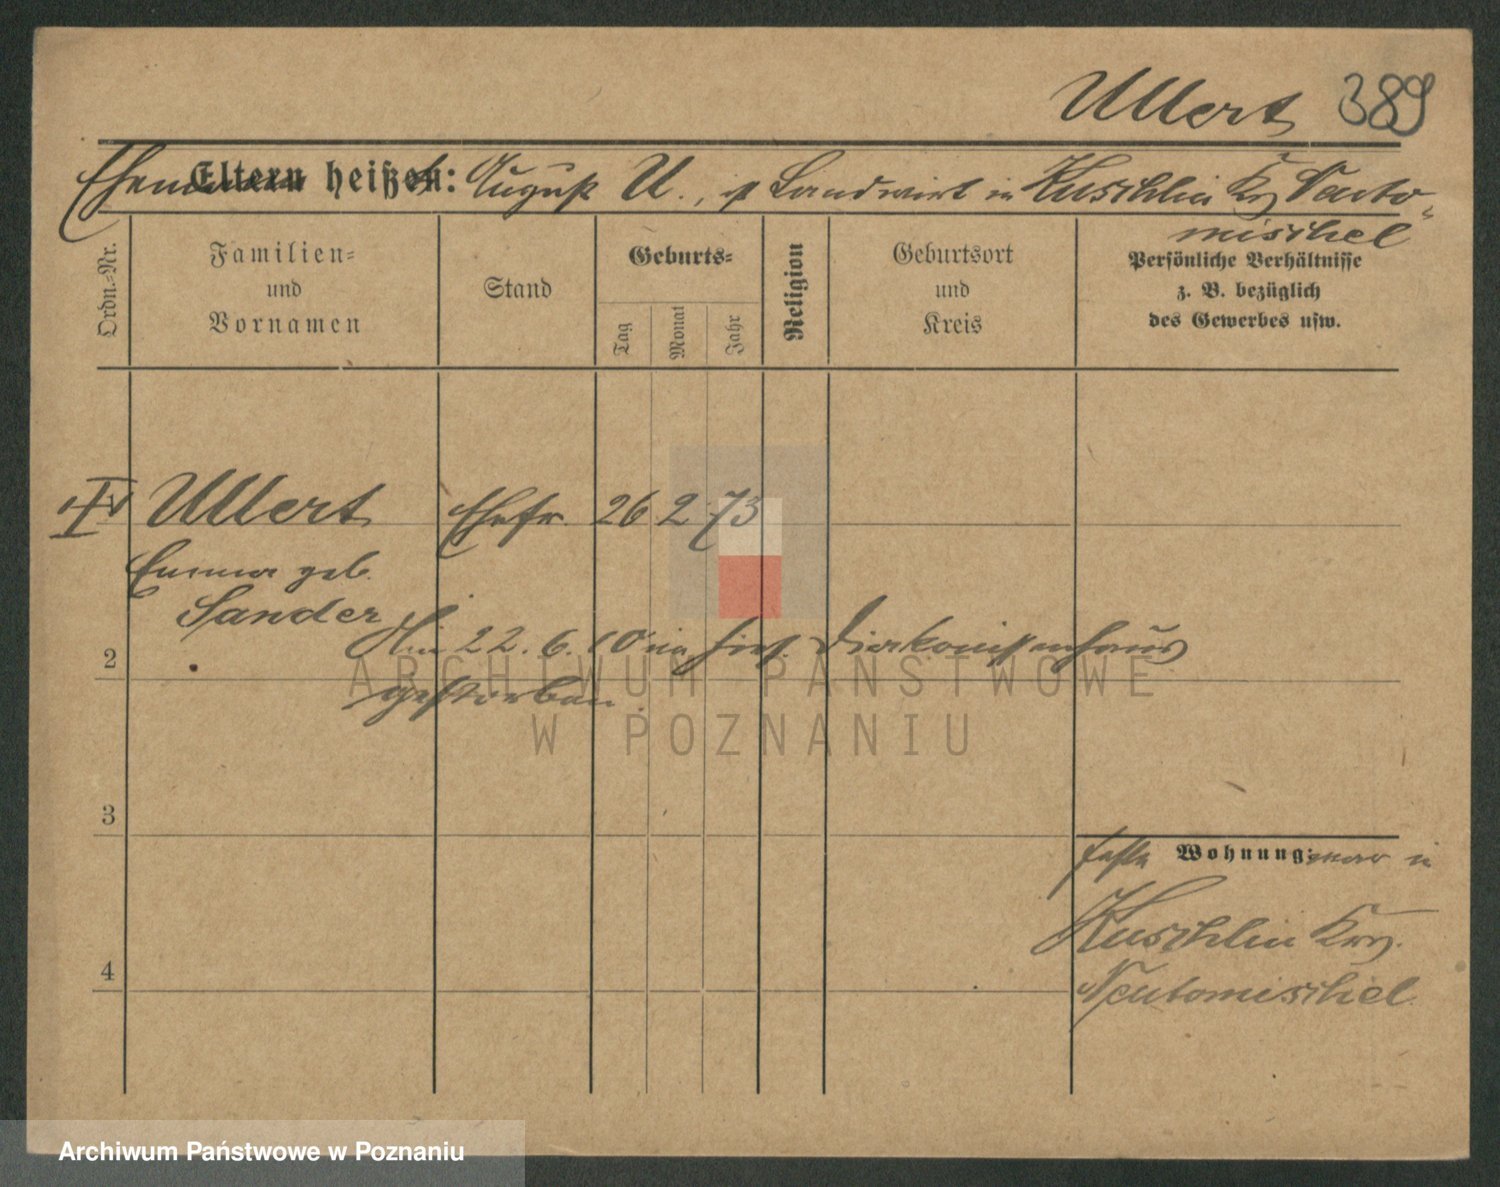 Ullert 389
Ehemann Eltern heißen: August U., ist Landwirt in Kuschlin Krs Neuto-
mischel
Ordn.-Nr.
Familien-
und
Vornamen
Stand
Geburts-
Tag
Monat
Jahr
Religion
Geburtsort
und
Kreis
Persönliche Verhältnisse
z. B. bezüglich
des Gewerbes usw.
Ullert Ehefr. 26 2 73
Emma geb.
Sander
Am 22. 6. 10 im hies. Diakonissenhaus
gestorben.
2
3
4
feste Wohnung: war in
Kuschlin Krs.
Neutomischel
ARCHIWUM PAŃSTWOWE
W POZNANIU
Archiwum Państwowe w Poznaniu